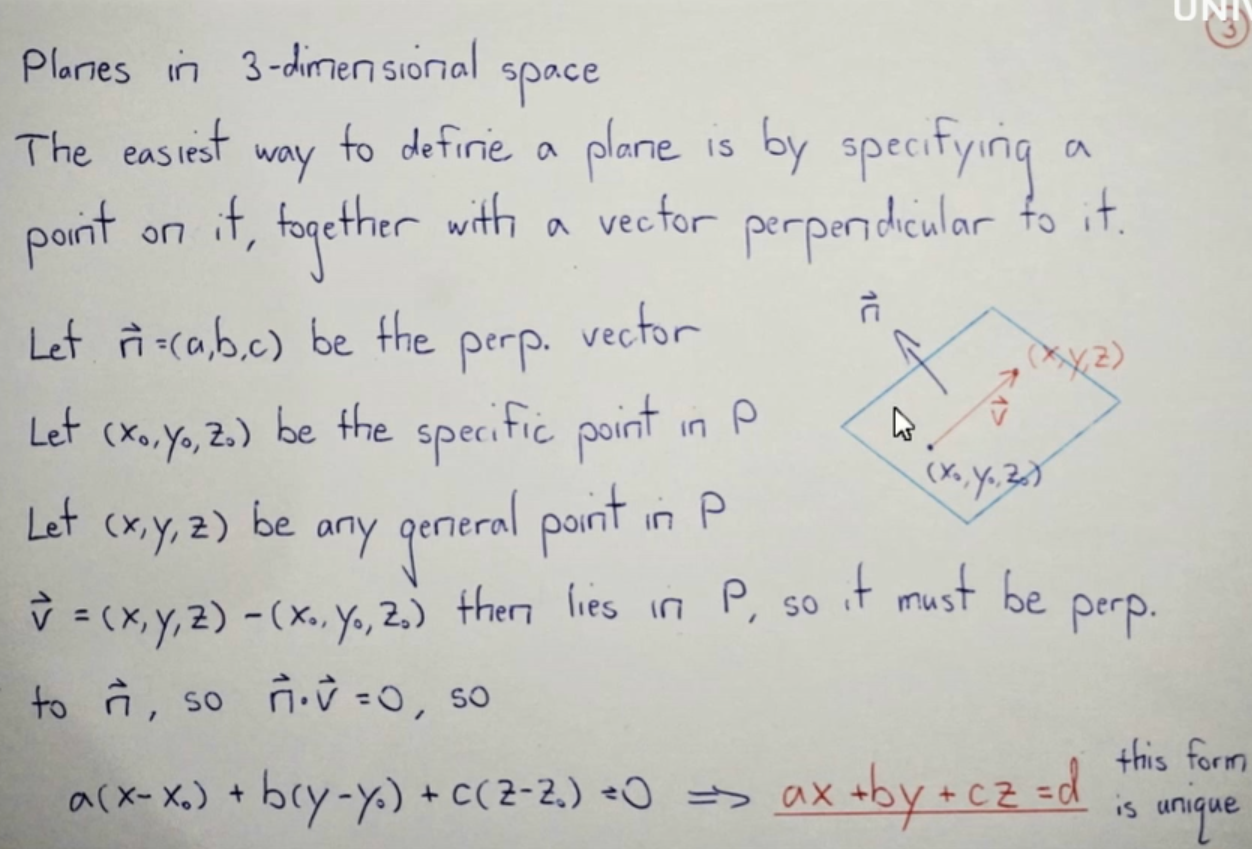 UNIV
3
Planes in 3-dimensional space
The easiest way to define a plane is by specifying a
point on it, together with a vector perpendicular to it.
Let n⃗ =(a,b,c) be the perp. vector
Let (x₀,y₀,z₀) be the specific point in P
Let (x,y,z) be any general point in P
n⃗
(x,y,z)
v⃗
(x₀,y₀,z₀)
v⃗ = (x,y,z) - (x₀,y₀,z₀) then lies in P, so it must be perp.
to n⃗, so n⃗·v⃗ =0, so
a(x-x₀) + b(y-y₀) + c(z-z₀) =0 ⇒ ax +by + cz =d
this form
is unique